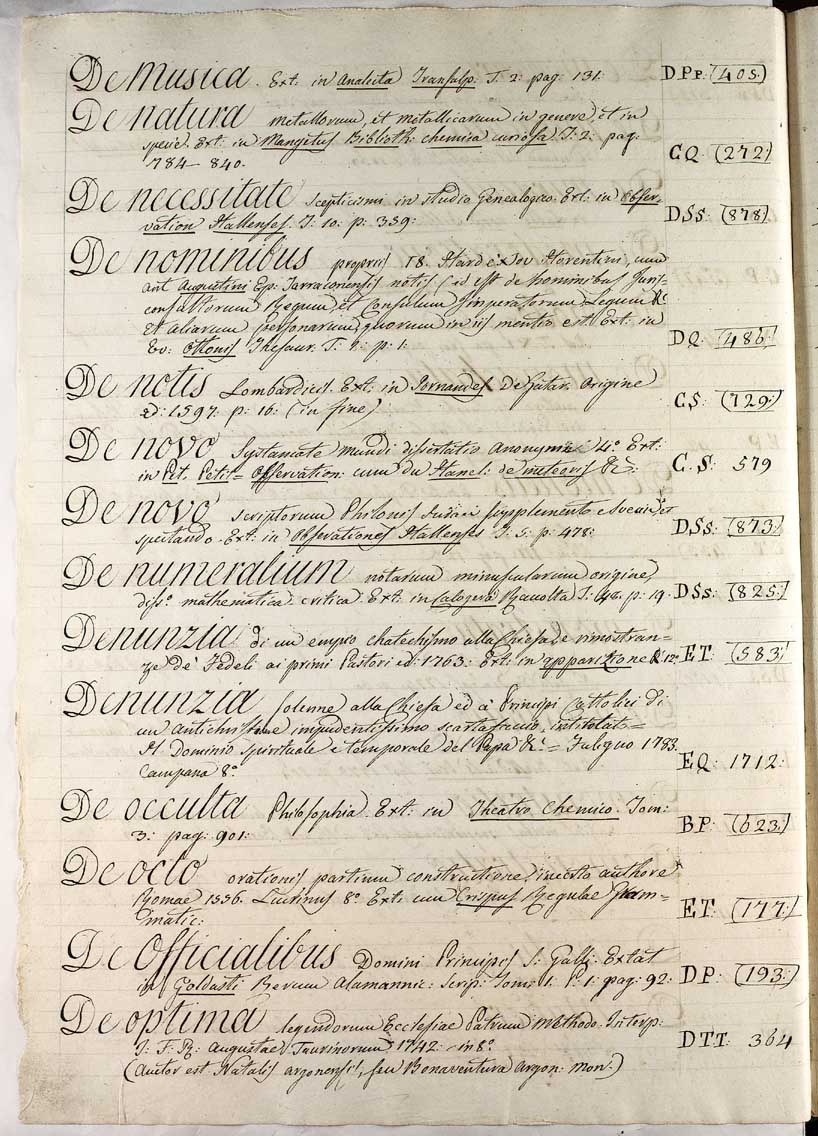 De musica. Ext: in Analecta Transalp. T. 2: pag: 131: DPp: (405.)
De natura metallorum, et metallicarum in genere, et in
specie. Ext: in Mangetus Biblioth: chemica curiosa T: 2: pag:
784-840. CQ: (272:)
De necessitate scepticismi in studio Genealogico. Ext: in Obser-
vation Hallenses. T: 10: p: 359: DSs: (878:)
De nominibus propriis Florentini, cum
ant. Augustini Ep: Tarraconensis notis (id est de Nominibus Juris-
consultorum Regum, et Consulum Imperatorum Legum &c
et aliarum personarum quorum in iis mentio est. Ext: in
Ev: Ottonis Thesaur. T: 1: p: 1: DQ: (486:)
De notis Lombardicis. Ext: in Jornandes De Getar. Origine
ed: 1597: p: 16: (in fine) CS: (729:)
De novo Systamate mundi dissertatio Anonyma 4º Ext:
in Pet. Petit= Observation: cum du Hamel: de meteoris &c: C.S: 579
De novo scriptorum Philonis Judaei supplemento e Suevia
spectando. Ext: in Observationes Hallenses T: 5: p: 478: DSs: (873:)
De numeralium notarum minuscularum origine,
dissº mathematica critica. Ext: in Calogerà Raccolta T: 48: p: 19. DSs: (825:)
Denunzia di un empio chatechismo alla Chiesa e rimostran-
ze de' Fedeli ai primi Pastori ed: 1763: Ext: in apparizione &c 12º ET: (583)
Denunzia solenne alla Chiesa ed à Principi Cattolici di
un antichristiano impudentissimo scartafaccio, intitolat=
Il Dominio spirituale e temporale del Papa &c: = Fuligno 1783.
Campana 8º EQ: 1712:
De occulta Philosophia. Ext: in Theatro Chemico. Tom:
3: pag: 901: BP: (623.)
De octo orationis partium constructione, incerto authore
Romae 1556. Lucrinus 8º Ext: cum Crispus Regulae Gram=
matic: ET: (177:)
De Officialibus Domini Principis S: Galli. Extat
in Goldasti Rerum Alamannic: scrip: Tom: 1: P: 1: pag: 92: DP: (193:)
De optima legendorum Ecclesiae Patrum methodo. Interp:
J: F: R: Augustae Taurinorum 1742: in 8º DTT: 364
(Auctor est Natalis argonensis, seu Bonaventura Argon: mon.)